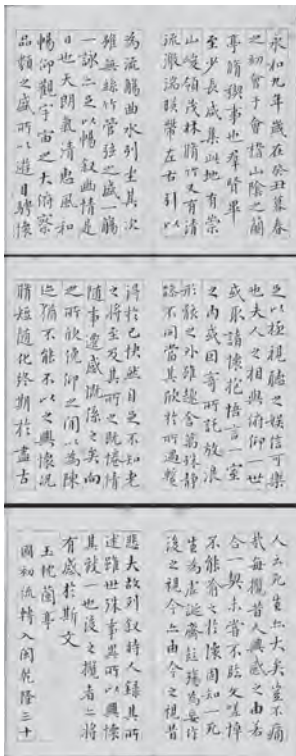 永和九年歲在癸丑暮春
之初會于會稽山陰之蘭
亭脩禊事也羣賢畢
至少長咸集此地有崇
山峻領茂林脩竹又有清
流激湍暎帶左右引以
為流觴曲水列坐其次
雖無絲竹管弦之盛一觴
一詠亦足以暢敘幽情是
日也天朗氣清惠風和
暢仰觀宇宙之大俯察
品類之盛所以遊目騁懷
足以極視聽之娛信可樂
也夫人之相與俯仰一世
或取諸懷抱悟言一室
之內或因寄所託放浪
形骸之外雖趣舍萬殊靜
躁不同當其欣於所遇蹔
得於己快然自足不知老
之將至及其所之既惓情
隨事遷感慨係之矣向
之所欣俛仰之間以為陳
迹猶不能不以之興懷況
脩短隨化終期於盡古
人云死生亦大矣豈不痛
哉每攬昔人興感之由若
合一契未嘗不臨文嗟悼
不能喻之於懷固知一死
生為虛誕齊彭殤為妄作
後之視今亦由今之視昔
悲夫故列敘時人錄其所
述雖世殊事異所以興懷
其致一也後之攬者亦將
有感於斯文
玉枕蘭亭
國初流轉入閩乾隆三十